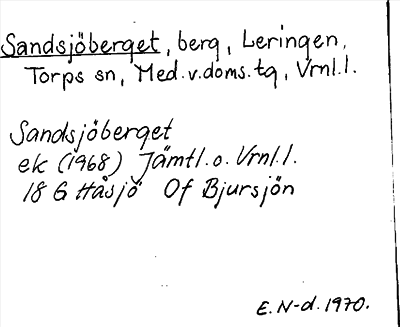 Sandsjöberget, berg, Leringen,
Torps sn, Med.v.doms.tg, Vrnl.l.
Sandsjöberget
ek (1968) Jämtl.o. Vrnl.l.
18 G Håsjö Of Bjursjön
E.N-d.1970.